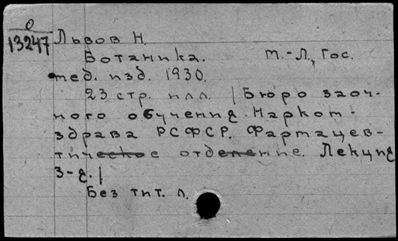 0
13247
Львов Н.
Ботаника. М.-Л., Гос.
мед. изд. 1930.
23 стр. илл. |Бюро заоч-
ного обучения Нарком-
здрава РСФСР. Фармацев-
тическое отделение. Лекция
3-я.|
Без тит. л.